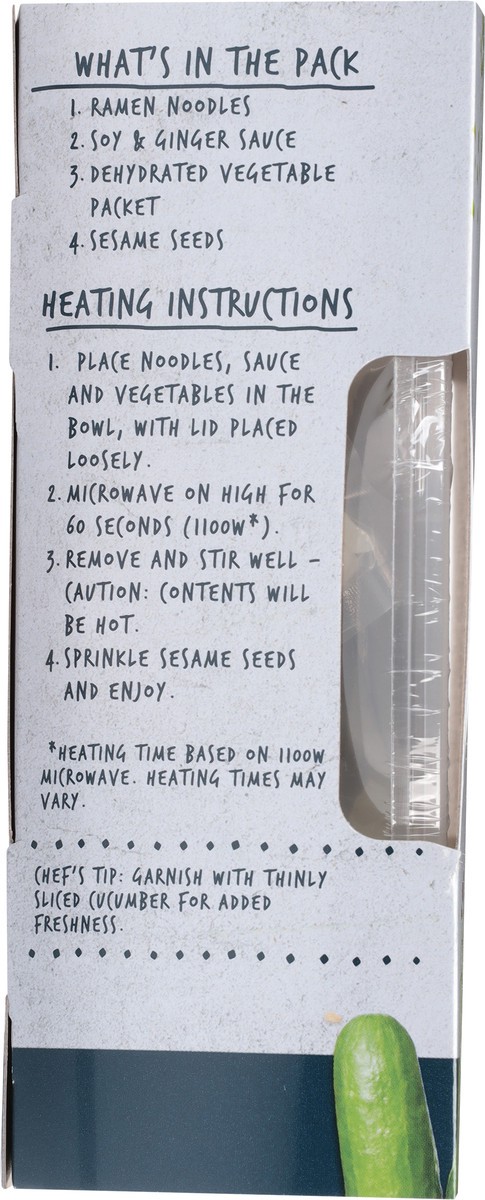 WHAT'S IN THE PACK
1. RAMEN NOODLES
2. SOY & GINGER SAUCE
3. DEHYDRATED VEGETABLE
PACKET
4. SESAME SEEDS
HEATING INSTRUCTIONS
1. PLACE NOODLES, SAUCE
AND VEGETABLES IN THE
BOWL, WITH LID PLACED
LOOSELY.
2. MICROWAVE ON HIGH FOR
60 SECONDS (1100W*).
3. REMOVE AND STIR WELL –
CAUTION: CONTENTS WILL
BE HOT.
4. SPRINKLE SESAME SEEDS
AND ENJOY.
*HEATING TIME BASED ON 1100W
MICROWAVE. HEATING TIMES MAY
VARY.
CHEF'S TIP: GARNISH WITH THINLY
SLICED CUCUMBER FOR ADDED
FRESHNESS.